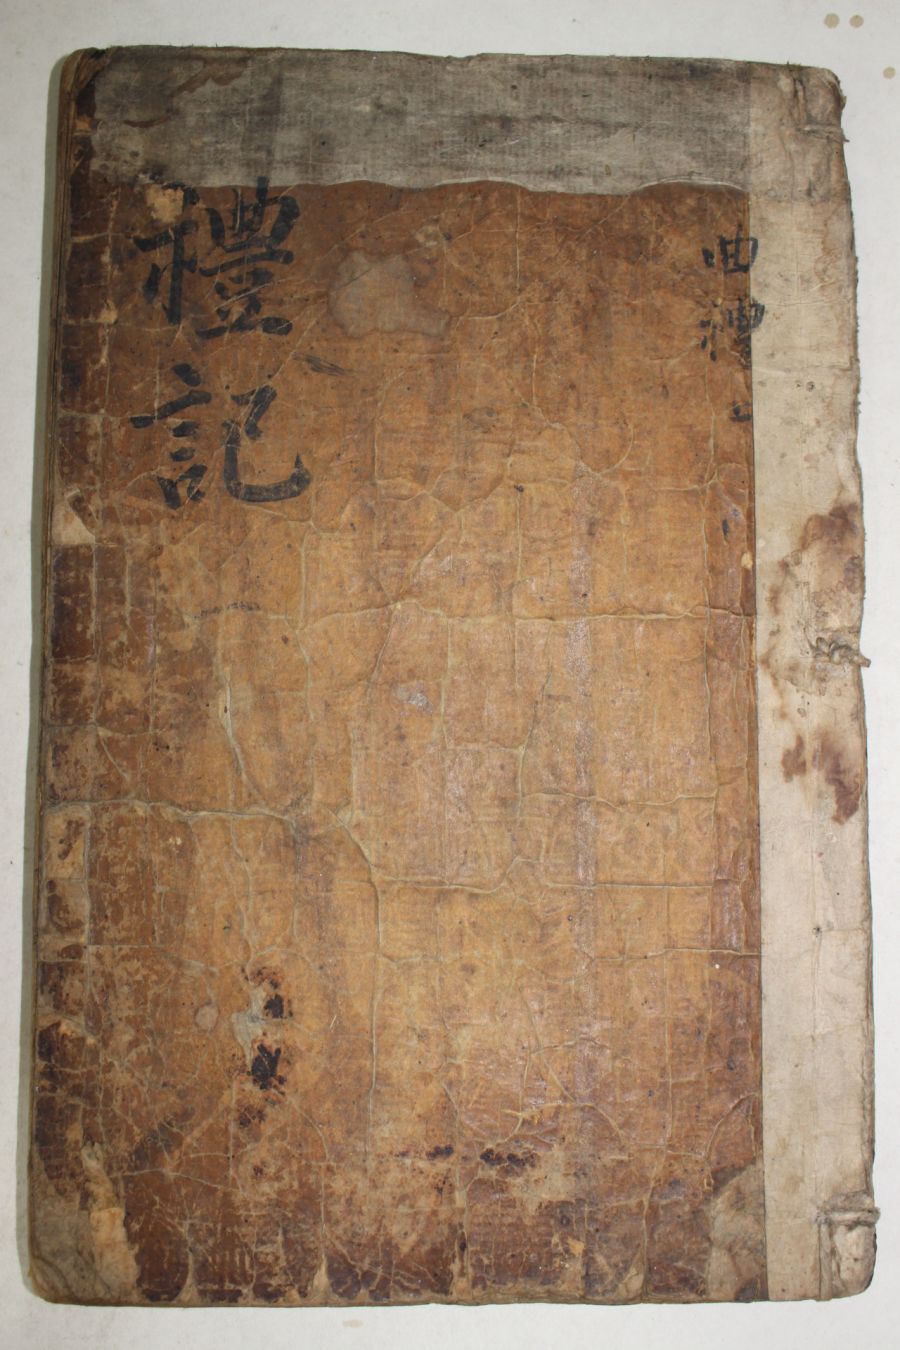 禮記
曲禮
上